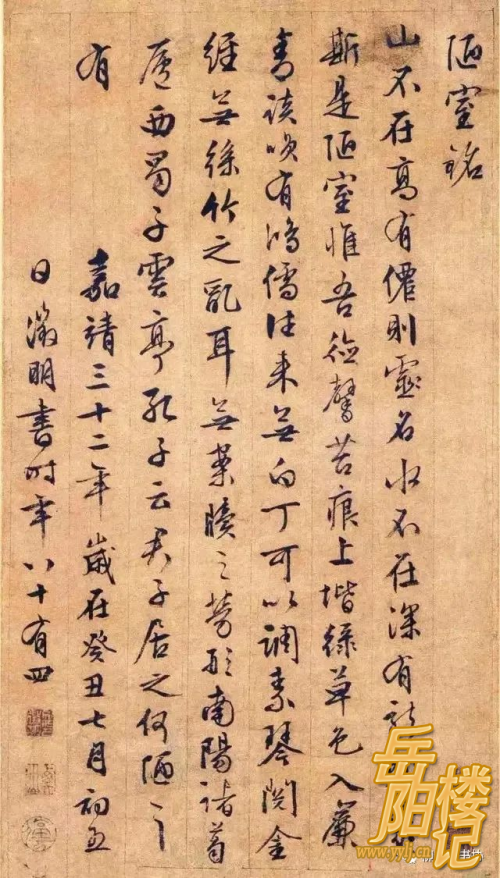 陋室銘
山不在高有僊則靈名水不在深有
斯是陋室惟吾德馨苔痕上堦綠草色入簾
青談咲有鴻儒往來無白丁可以調素琴閱金
經無絲竹之亂耳無案牘之勞形南陽諸葛
廬西蜀子雲亭孔子云夫子居之何陋之
有
嘉靖三十二年歲在癸丑七月初五
日徵明書時年八十有四
岳阳楼记
www.yylj.cn